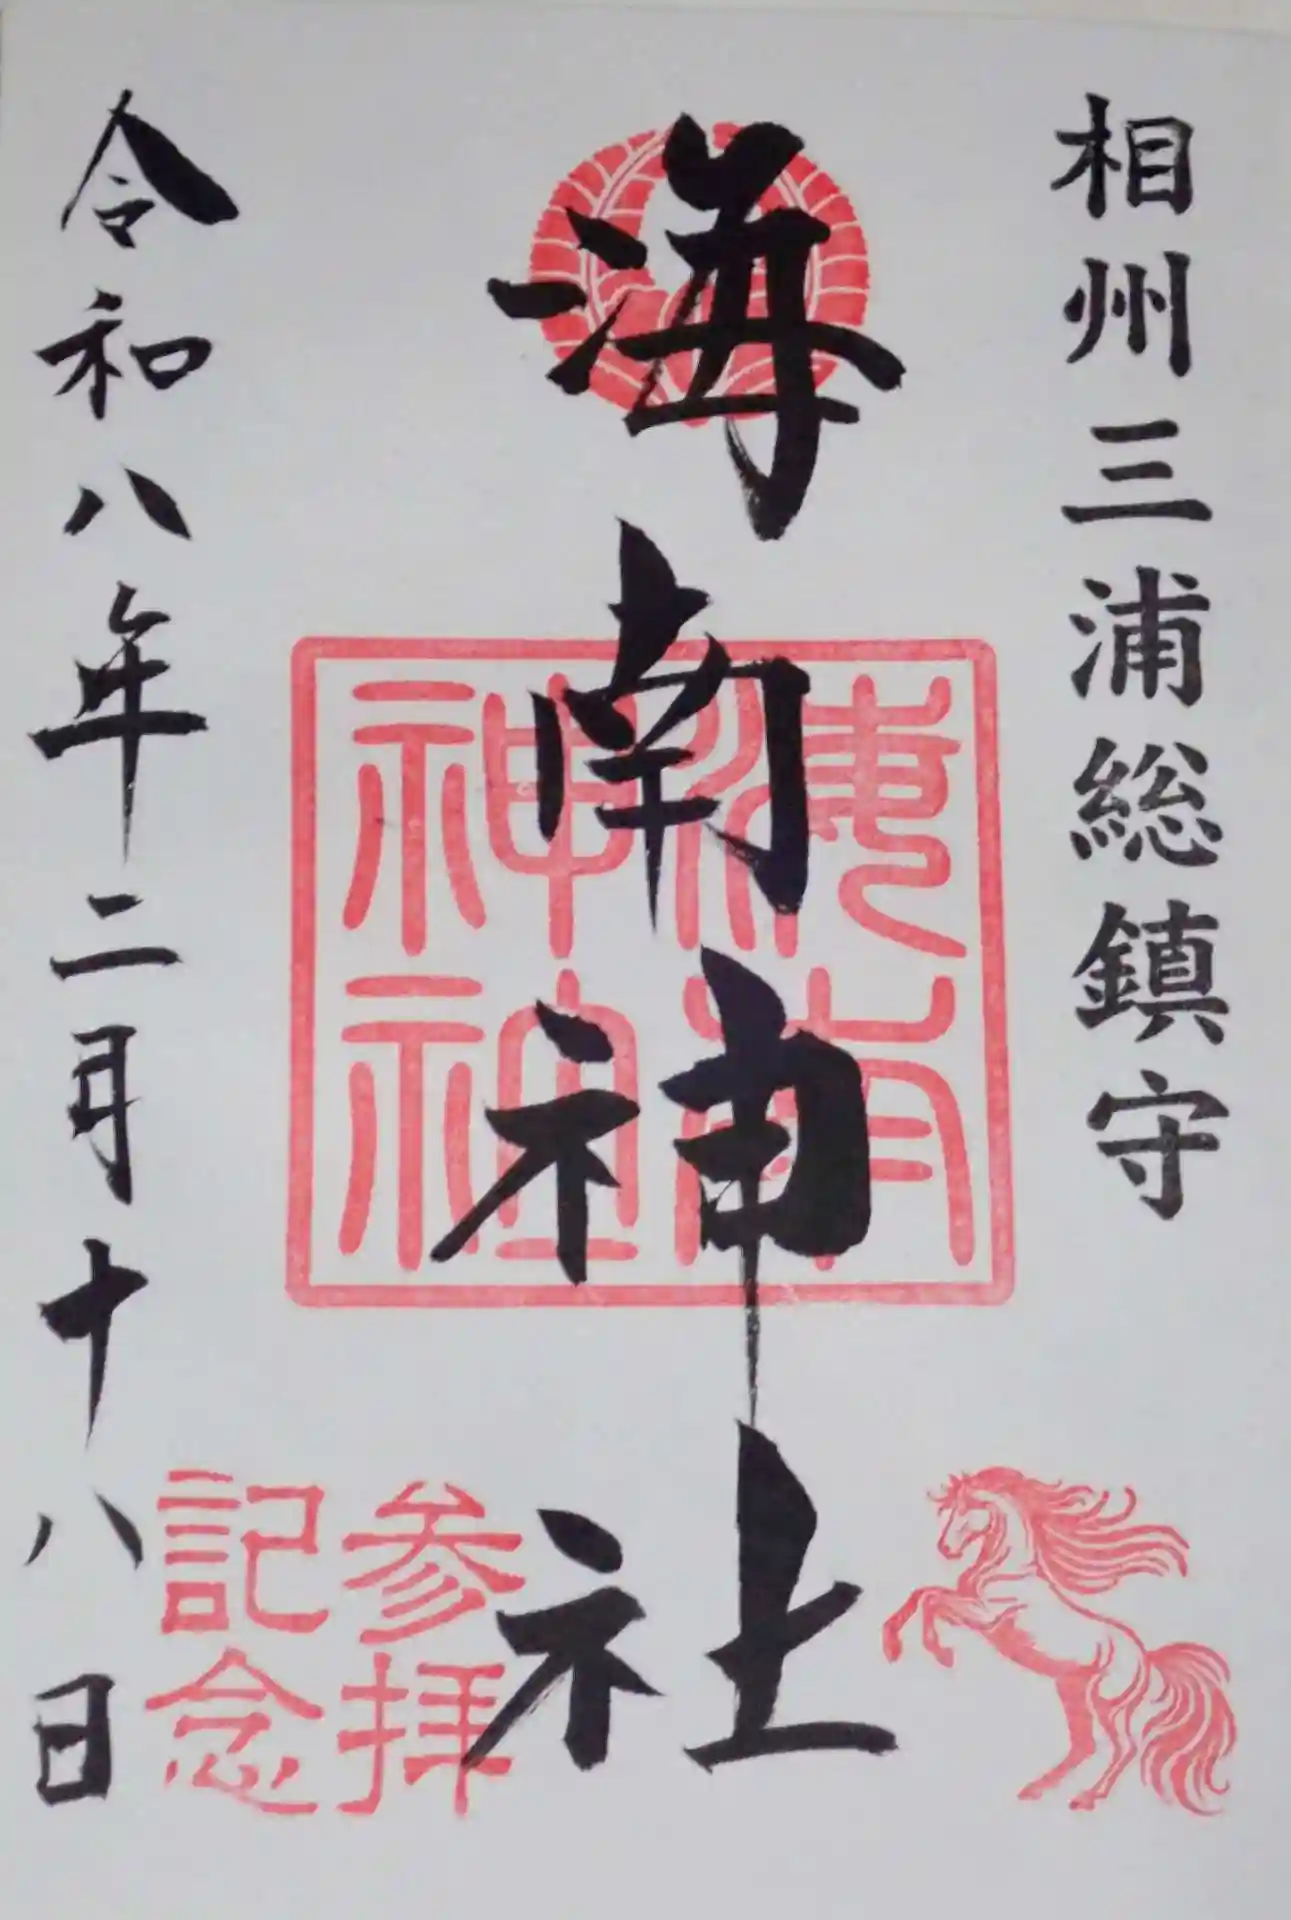 相州三浦総鎮守
海南神社
海南
神社
参拝
記念
令和八年二月十八日